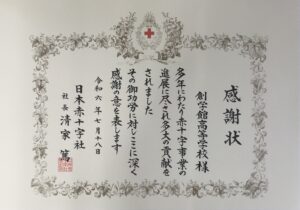 感謝状
創学館高等学校様
多年にわたり赤十字事業の
進展に尽され多大の貢献を
されました
その御功労に対しここに深く
感謝の意を表します
令和六年七月十八日
日本赤十字社
社長 清家 篤